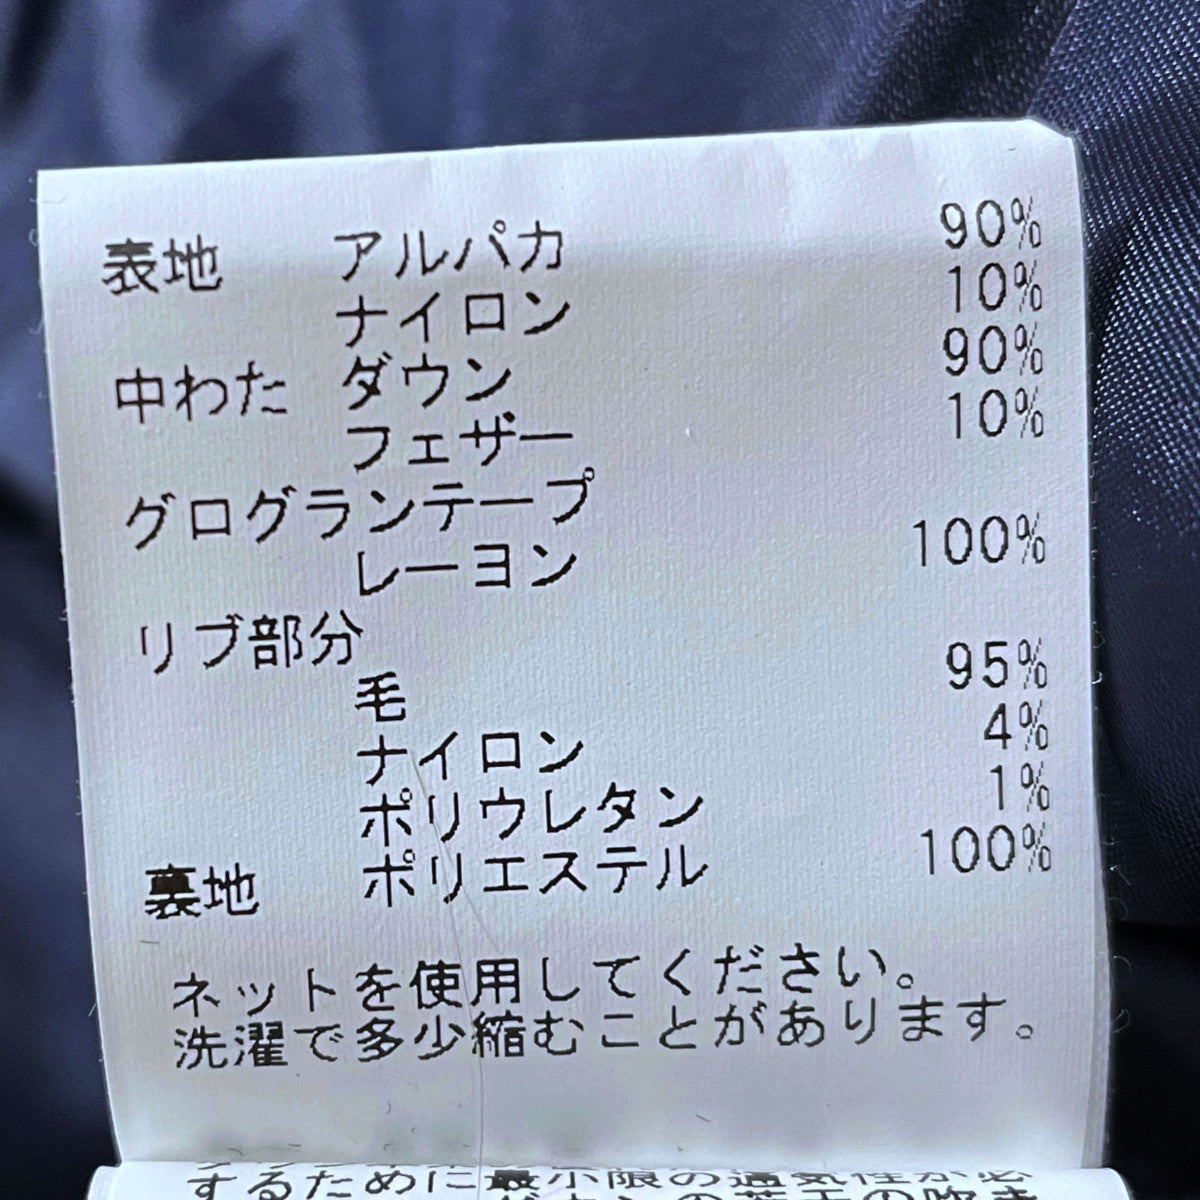 表地 アルパカ 90%
ナイロン 10%
中わた ダウン 90%
フェザー 10%
グログランテープ
レーヨン 100%
リブ部分
毛 95%
ナイロン 4%
ポリウレタン 1%
裏地 ポリエステル 100%
ネットを使用してください。
洗濯で多少縮むことがあります。
するために最小限の通気性が必